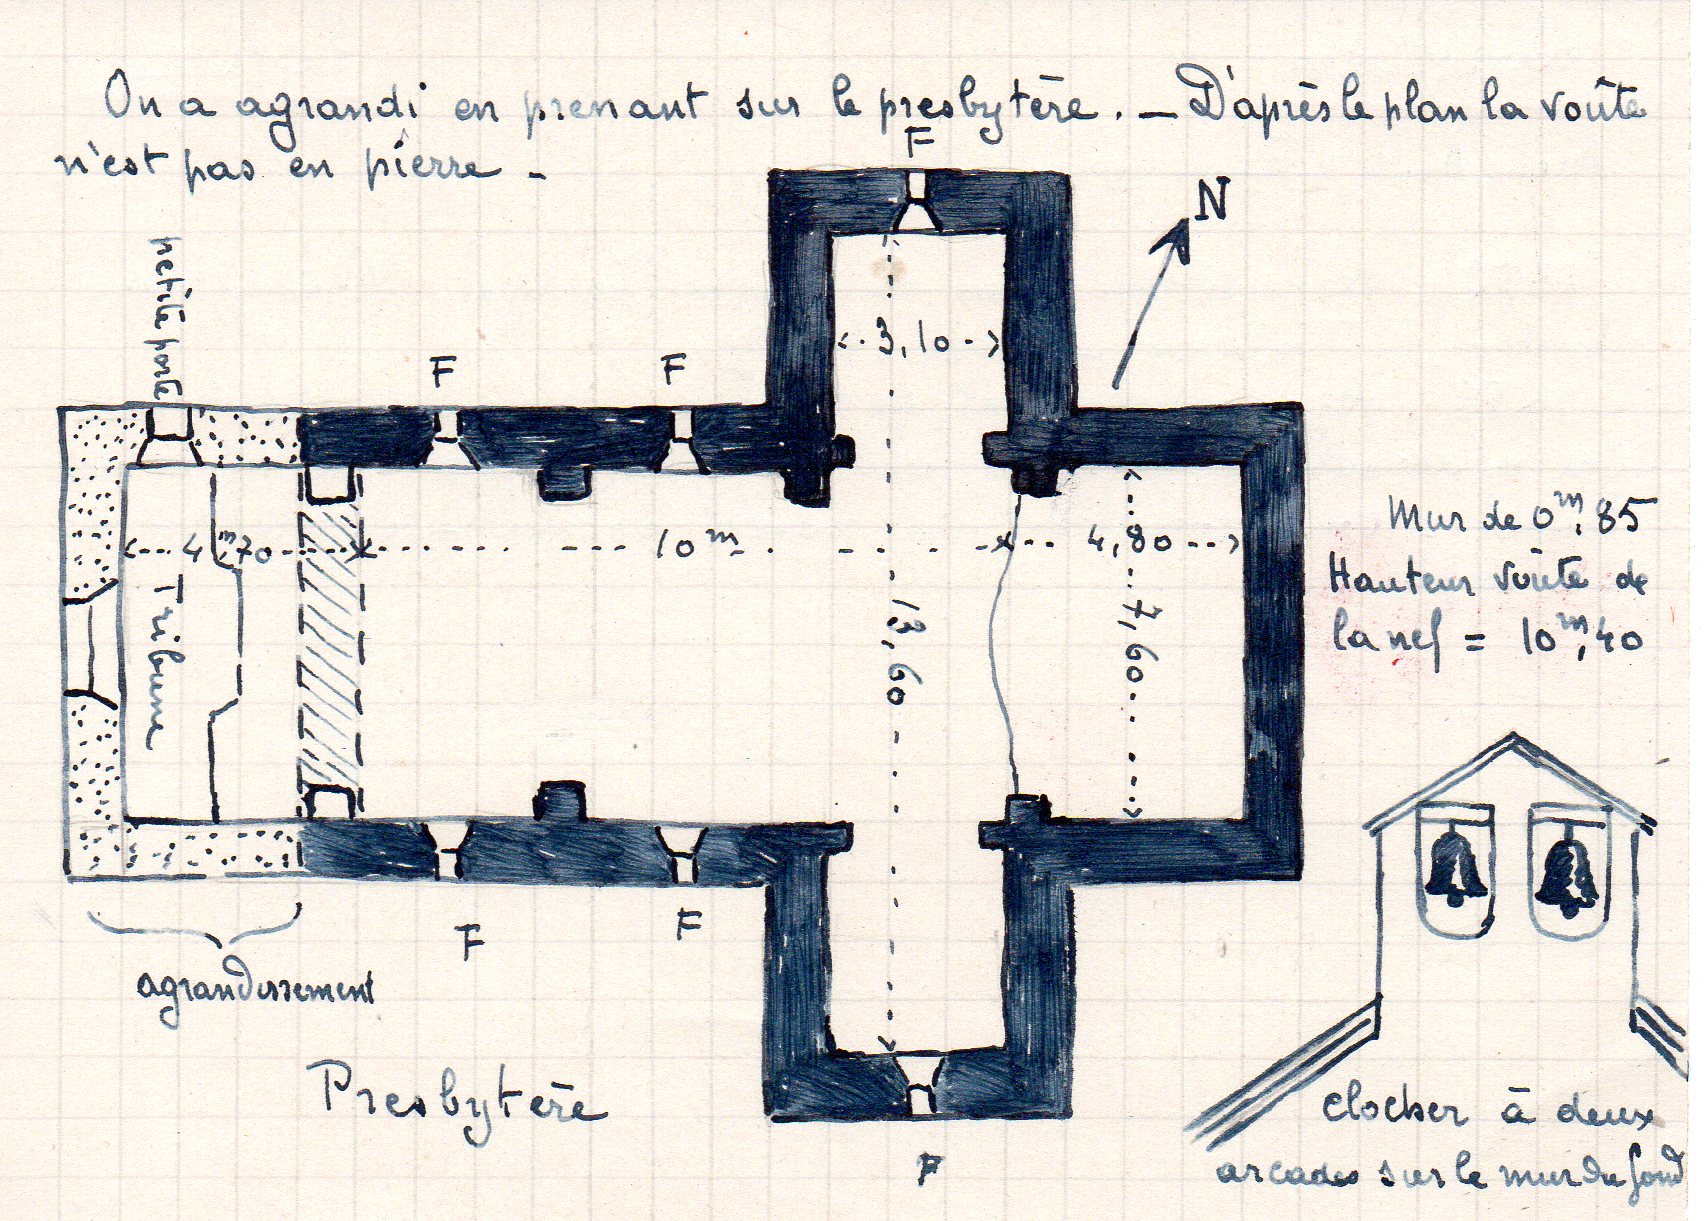 On a agrandi en prenant sur le presbytère. — D'après le plan la voûte
n'est pas en pierre -
F
N
petite porte
F
F
3,10
4m,70
10m
4,80
Tribune
13,60
7,60
Mur de 0m,85
Hauteur voûte de
la nef = 10m,40
F
F
agrandissement
Presbytère
F
clocher à deux
arcades sur le mur du fond